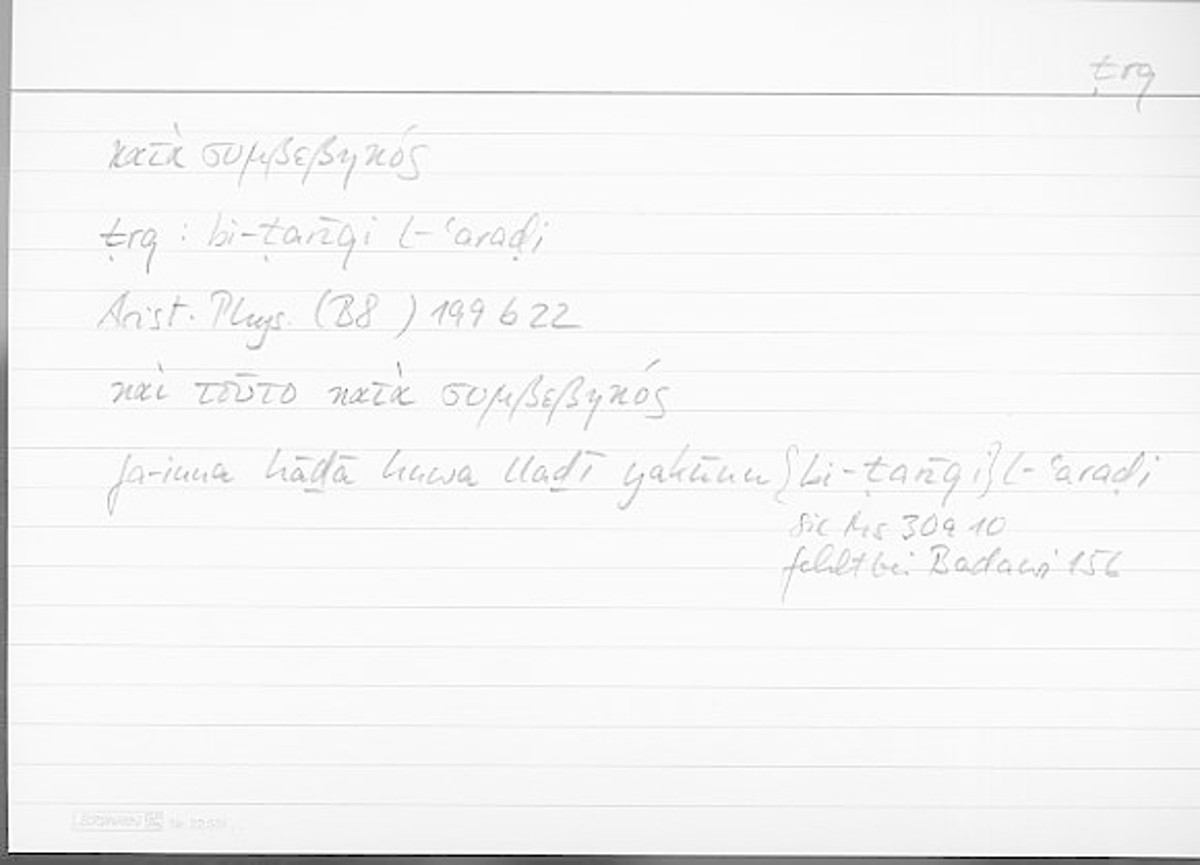 ṭrq
κατὰ συμβεβηκός
ṭrq : bi-ṭarīqi l-ʿaraḍi
Arist. Phys. (B8 ) 199 b 22
καὶ τοῦτο κατὰ συμβεβηκός
fa-inna hāḏā huwa llaḏī yakūnu {bi-ṭarīqi} l-ʿaraḍi
sic Ms 30a 10
fehlt bei Badawi 156